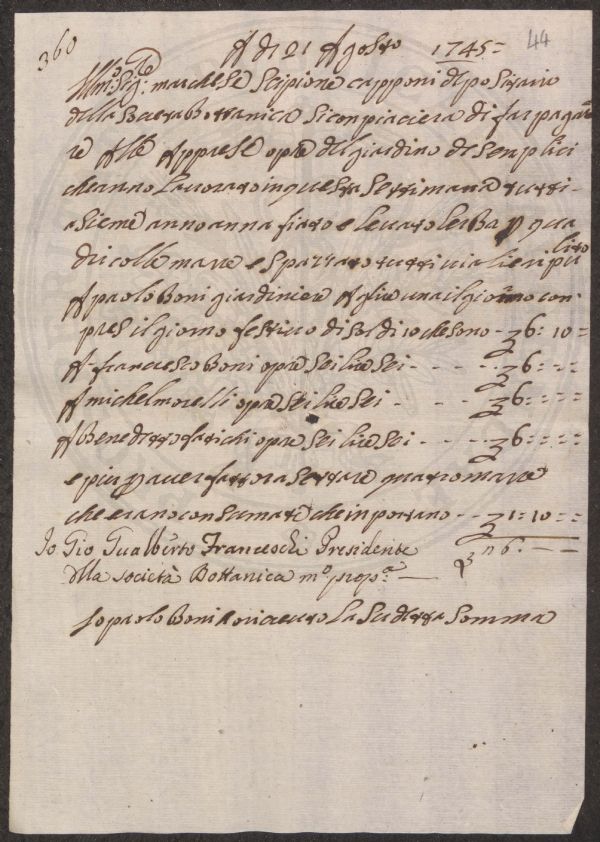 360
44
A di 21 Agosto 1745 =
Illmo: Sig:re marchese Scipione capponi dipositario
della Socetabottanica Siconpiacera di far pagare
re Alle Apprese opre del giardino de senplici
cheanno Lavoratoinquesta Settimana tutti
asieme anno anna fiato e levato lerba p qua
dri colle mare e spazzato tutti viali e ripu
lito
A paolo Boni giardiniere A lire una il giorno con
pres il giorno festivo di soldi 10 che sono - 6: 10 =
A francesco Boni opre sei lire sei - - - - 6: = =
A michel morelli opre sei lire sei - - - 6: = =
A Benedetto farichi opre sei lire sei - - - - 6: = =
e piu p aver fatto rasettare quatro mare
che erano consumate che inportano - - 1: 10 = =
Io Gio Gualberto Franceschi Presidente
26. — —
della società Bottanica mo propa —
Io paolo Boni o ricevuto La Sudetta Somma